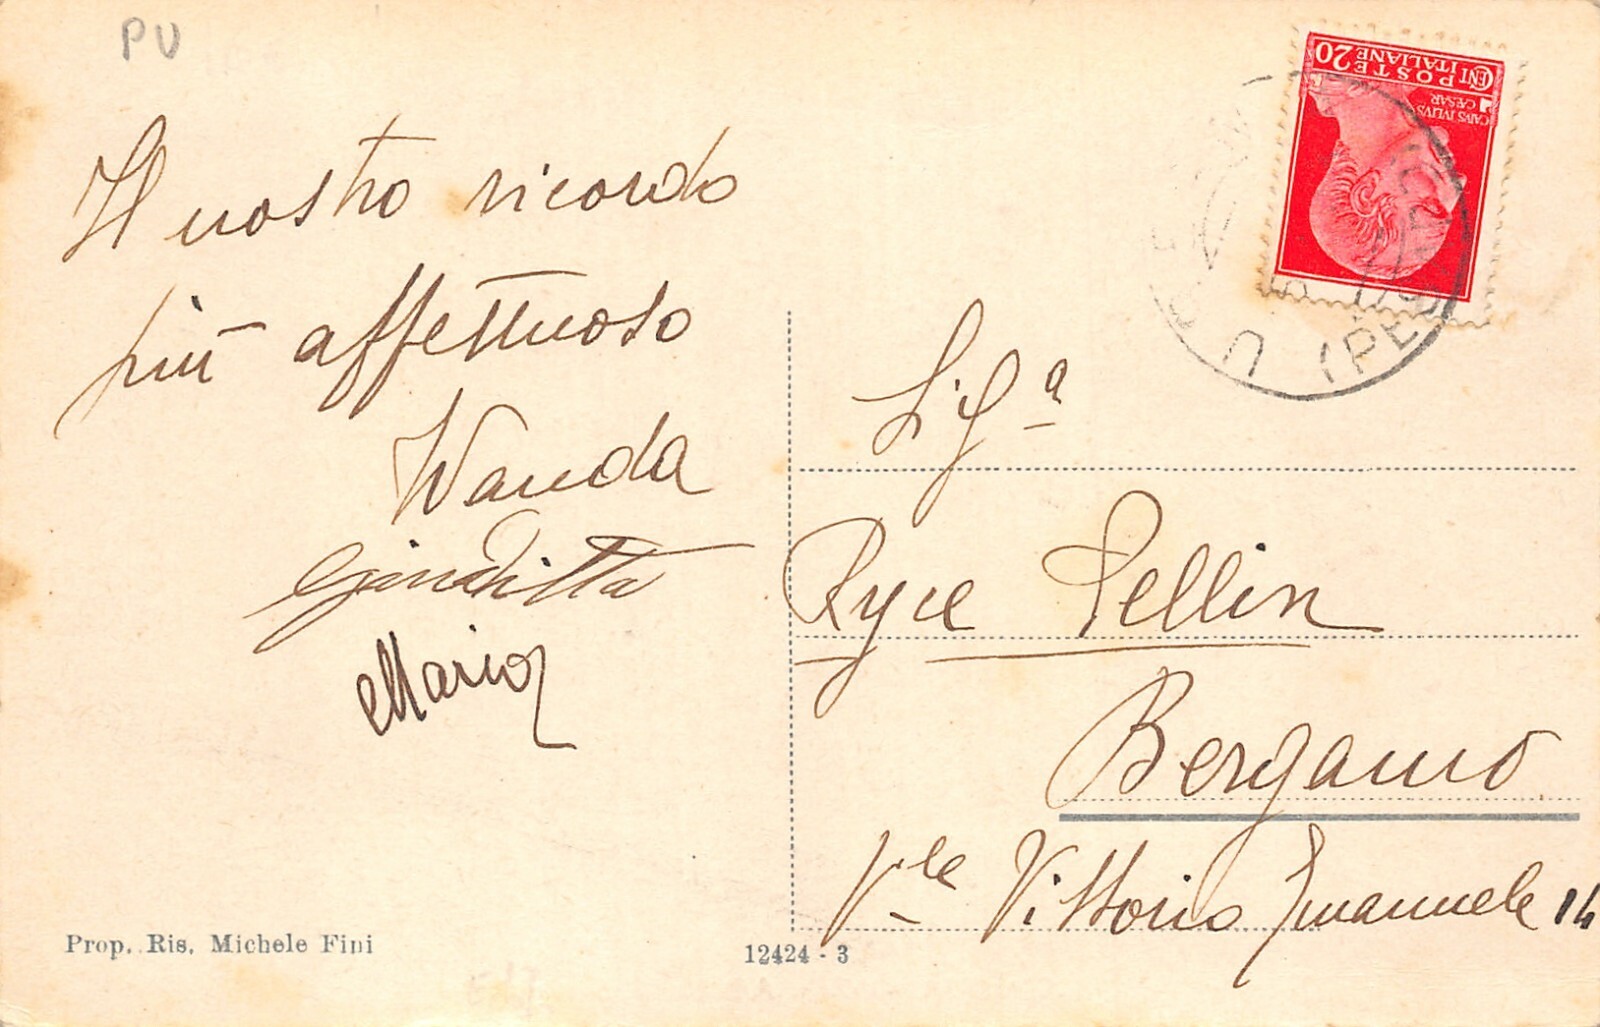 PU
Il nostro ricordo
più affettuoso
Wanda
Giuditta
Mario
Prop. Ris. Michele Fini
12424 - 3
CENT 20 POSTE
ITALIANE
CAIVS IVLIVS
CÆSAR
(PE
Sig.ª
Pellin
Bergamo
V.le Vittorio Emanuele 14